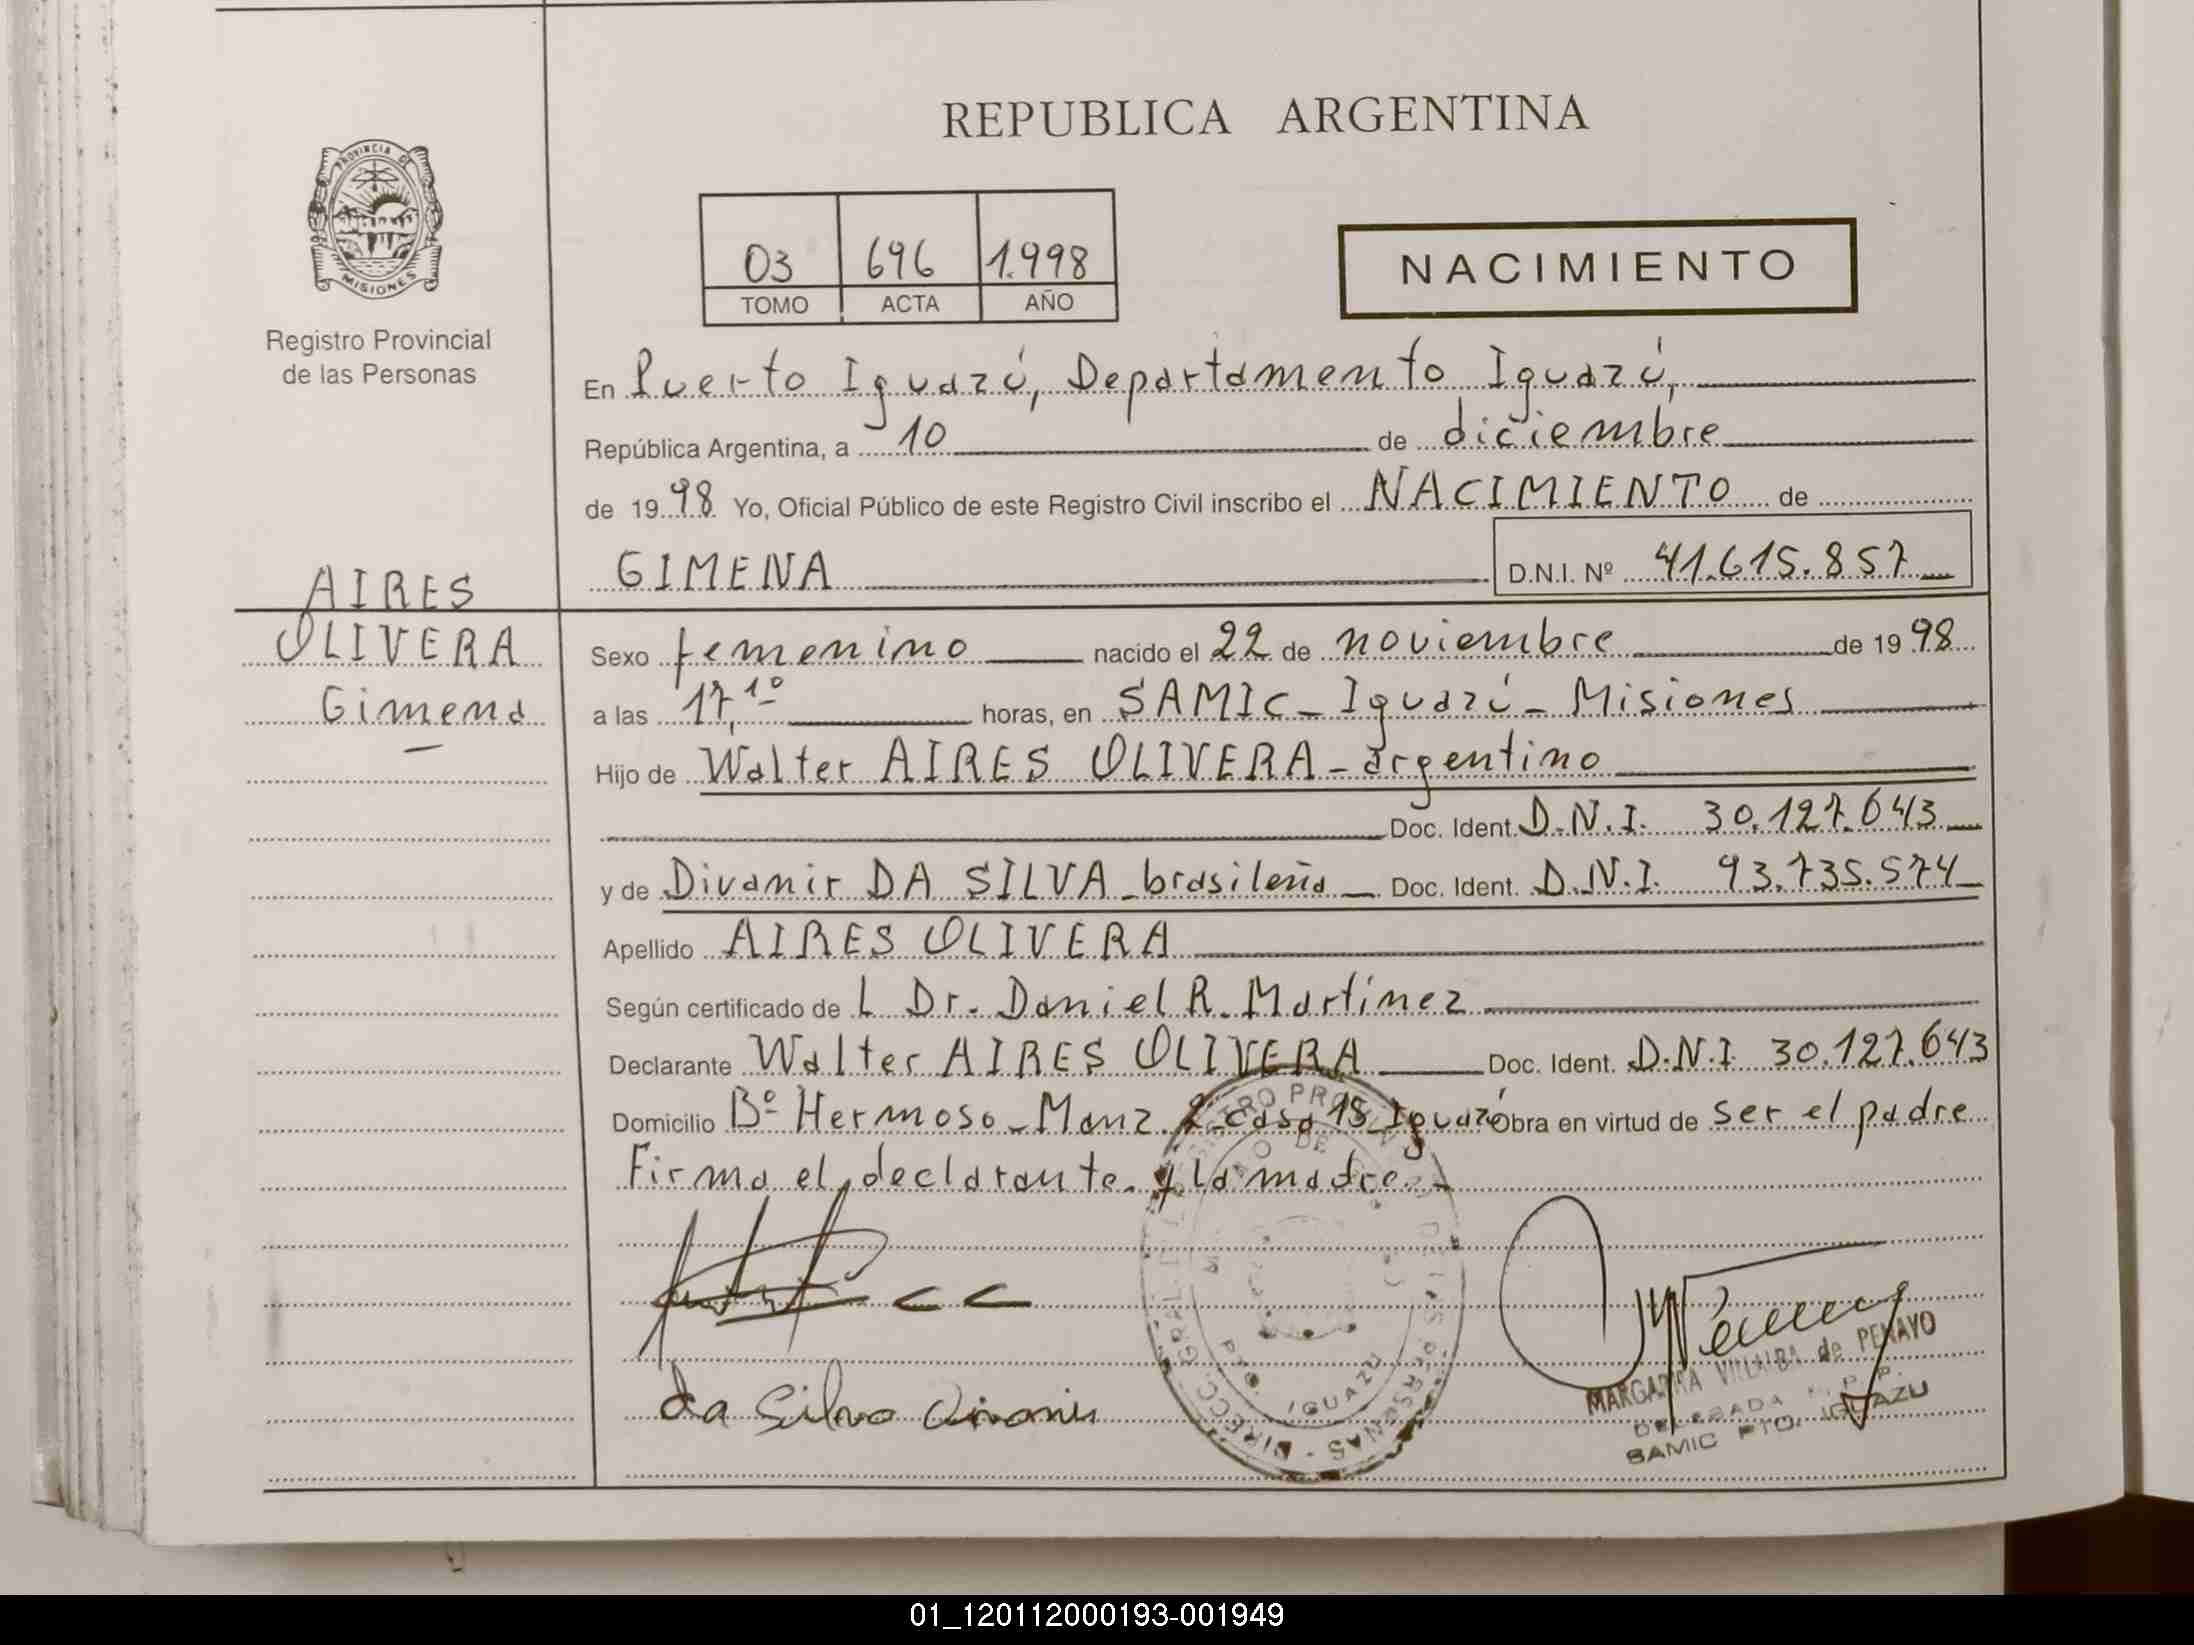 REPUBLICA ARGENTINA
PROVINCIA DE
MISIONES
Registro Provincial
de las Personas
03 696 1.998
TOMO ACTA AÑO
NACIMIENTO
En Puerto Iguazú, Departamento Iguazú,
República Argentina, a 10 de diciembre
de 1998 Yo, Oficial Público de este Registro Civil inscribo el NACIMIENTO de
GIMENA D.N.I. Nº 41.615.857
AIRES
OLIVERA
Gimena
Sexo femenino nacido el 22 de noviembre de 1998
a las 17,10 horas, en SAMIC - Iguazú - Misiones
Hijo de Walter AIRES OLIVERA - argentino
Doc. Ident. D.N.I. 30.127.643
y de Divanir DA SILVA - brasileña Doc. Ident. D.N.I. 93.735.574
Apellido AIRES OLIVERA
Según certificado de L Dr. Daniel R. Martínez
Declarante Walter AIRES OLIVERA Doc. Ident. D.N.I. 30.127.643
Domicilio Bº Hermoso - Manz. 2 - casa 18 Iguazú Obra en virtud de ser el padre
Firma el declarante y la madre.-
da Silva Divanir
DIRECC. GRAL. REGISTRO PROVINCIAL DE LAS PERSONAS
PTO. IGUAZU
MARGARITA VILLALBA de PENAYO
DELEGADA R. P. P.
SAMIC PTO. IGUAZU
01_120112000193-001949